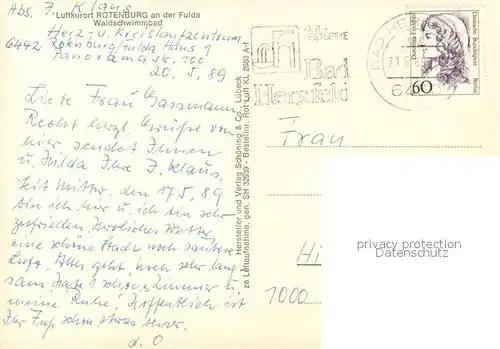 Abs. J. Klaus
Luftkurort ROTENBURG an der Fulda
Waldschwimmbad
Herz- u. Kreislaufzentrum
6442 Rotenburg/Fulda Haus 1
Panorama str. 100
20. 5. 89
Liebe Frau Gassmann,
Recht herzl. Grüße von
hier, sendet Ihnen
u. Hilda Ihre J. Klaus.
Seit Mittw. den 17.5.89
bin ich hier u. ich bin sehr
zufrieden. Herrliches Wetter,
eine schöne Stadt noch saubere
Luft. Alles geht noch sehr lang
sam. Habe 1 schönes Zimmer u.
meine Ruhe! Hoffentlich ist
Ihr Fuß schon etwas besser.
d. O
Hersteller und Verlag Schöning & Co., Lübeck
ze Luftaufnahme, gen. SH 32939 - Bestellnr. Rot Luft KL 2983 A-1
FESTSPIELE
Bad
Hersfeld
BAD HE
Deutsche Bundespost
Berlin
60
Frau
privacy protection
Datenschutz
1000